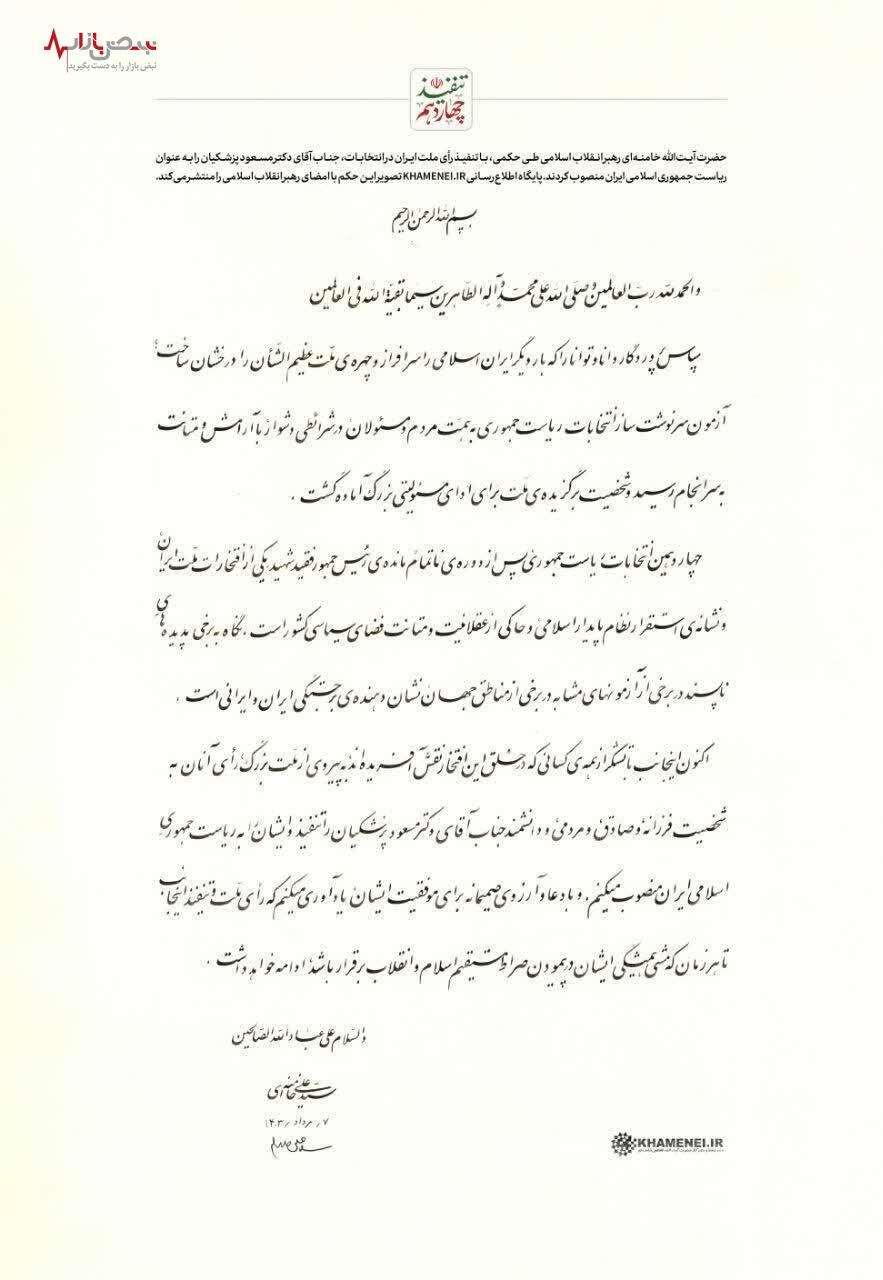 نبض بازار
نبض بازار را به دست بگیرید
تنفیذ
چهاردهم
حضرت آیت‌الله خامنه‌ای رهبر انقلاب اسلامی طی حکمی، با تنفیذ رأی ملت ایران در انتخابات، جناب آقای دکتر مسعود پزشکیان را به عنوان
ریاست جمهوری اسلامی ایران منصوب کردند. پایگاه اطلاع‌رسانی KHAMENEI.IR تصویر این حکم با امضای رهبر انقلاب اسلامی را منتشر می‌کند.
بسم الله الرحمن الرحیم
والحمد لله رب العالمین و صلی الله علی محمد و آله الطاهرین سیما بقیة الله فی العالمین
سپاس پروردگار دانا و توانا را که بار دیگر ایران اسلامی را سرافراز و چهره‌ی ملت عظیم الشّأن را درخشان ساخت؛
آزمون سرنوشت ساز انتخابات ریاست جمهوری به همّت مردم و مسئولان در شرائطی دشوار با آرامش و متانت
به سرانجام رسید و شخصیت برگزیده‌ی ملت برای ادای مسئولیتی بزرگ آماده گشت.
چهاردهمین انتخابات ریاست جمهوری پس از دوره‌ی ناتمام مانده‌ی رئیس جمهور فقید شهید یکی از افتخارات ملت ایران
و نشانه‌ی استقرار نظام پایدار اسلامی و حاکی از عقلانیت و متانت فضای سیاسی کشور است. نگاه به برخی پدیده‌های
ناپسند در برخی از آزمونهای مشابه در برخی از مناطق جهان نشان دهنده‌ی برجستگی ایران و ایرانی است.
اکنون اینجانب با تشکر از همه‌ی کسانی که در خلق این افتخار نقش آفریده‌اند به پیروی از ملت بزرگ رأی آنان به
شخصیت فرزانه و صادق و مردمی و دانشمند جناب آقای دکتر مسعود پزشکیان را تنفیذ و ایشان را به ریاست جمهوری
اسلامی ایران منصوب میکنم. و با دعا و آرزوی صمیمانه برای موفقیت ایشان یادآوری میکنم که رأی ملت و تنفیذ اینجانب
تا هر زمان که مشی همیشگی ایشان در پیمودن صراط مستقیم اسلام و انقلاب برقرار باشد ادامه خواهد داشت.
والسّلام علی عباد الله الصّالحین
سیّدعلی خامنه‌ای
۷/مرداد/۱۴۰۳
KHAMENEI.IR